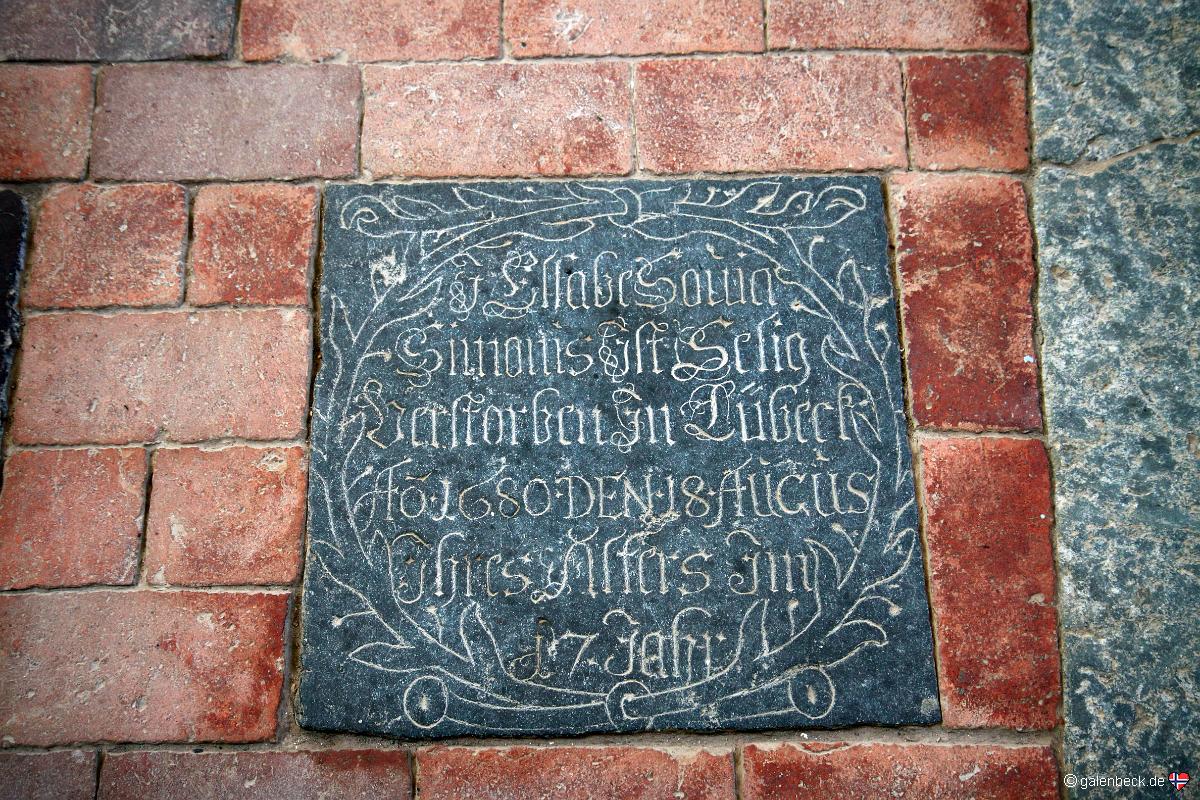 J EllsabeSovvia
Simonis Ist Selig
Verstorben In Lübeck
Aō·1680·DEN·18·AUGUS
Ihres Alters Im
17. Jahr
© galenbeck.de